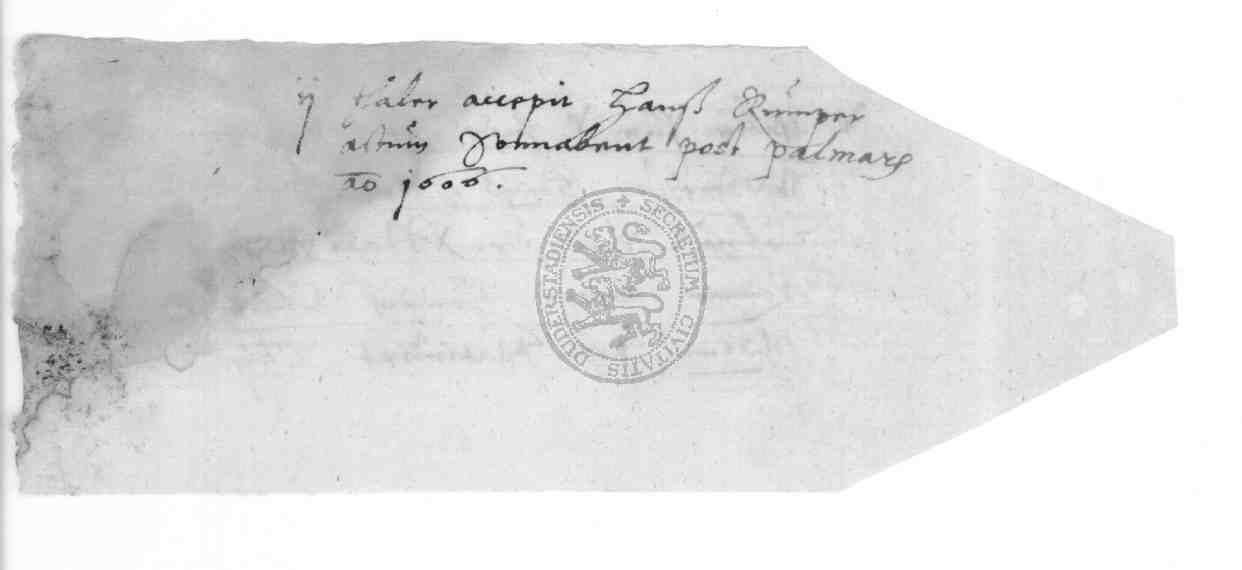 ij thaler accepit Hanß Rümper
actum Sonnabent post palmarum
ao 1606.
SECRETUM CIVITATIS DUDERSTADIENSIS